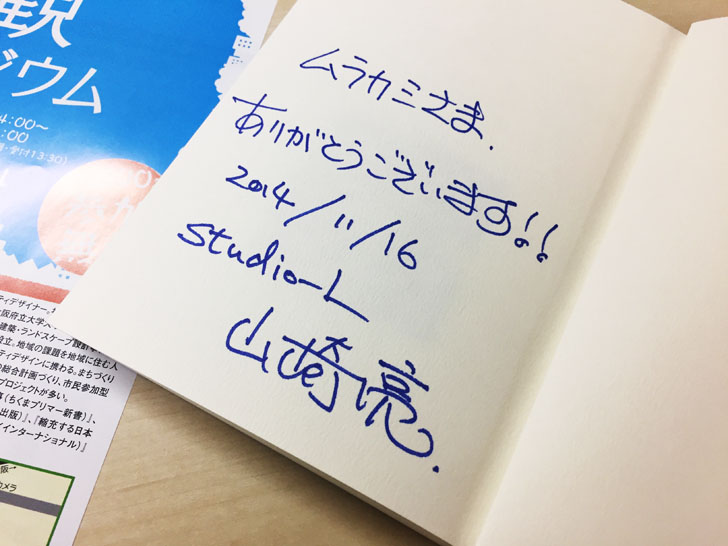 観
ジウム
4:00〜
:00
受付13:30)
ティデザイナー。
阪府立大学
建築・ランドスケープ設計
設立。地域の課題を地域に住む人
ティデザインに携わる。まちづくり
の総合計画づくり、市民参加型
プロジェクトが多い。
(ちくまプリマー新書)』、
出版)』、『縮充する日本
インターナショナル)』
阪
カメラ
ムラカミさま.
ありがとうございます!!
2014/11/16
studio-L
山崎亮.